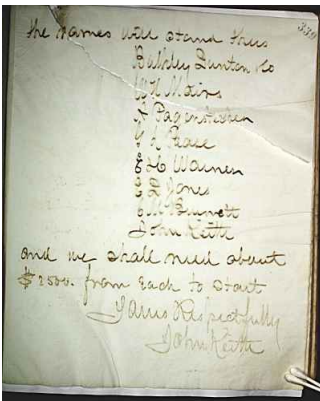 339
the names will stand thus
Bulkley Dunton & Co
W H Mairs
A Pagenstecher
Pease
E H Warner
E D Jones
Burnett
John Keith
and we shall need about
$2500. from Each to start
Yours Respectfully
John Keith